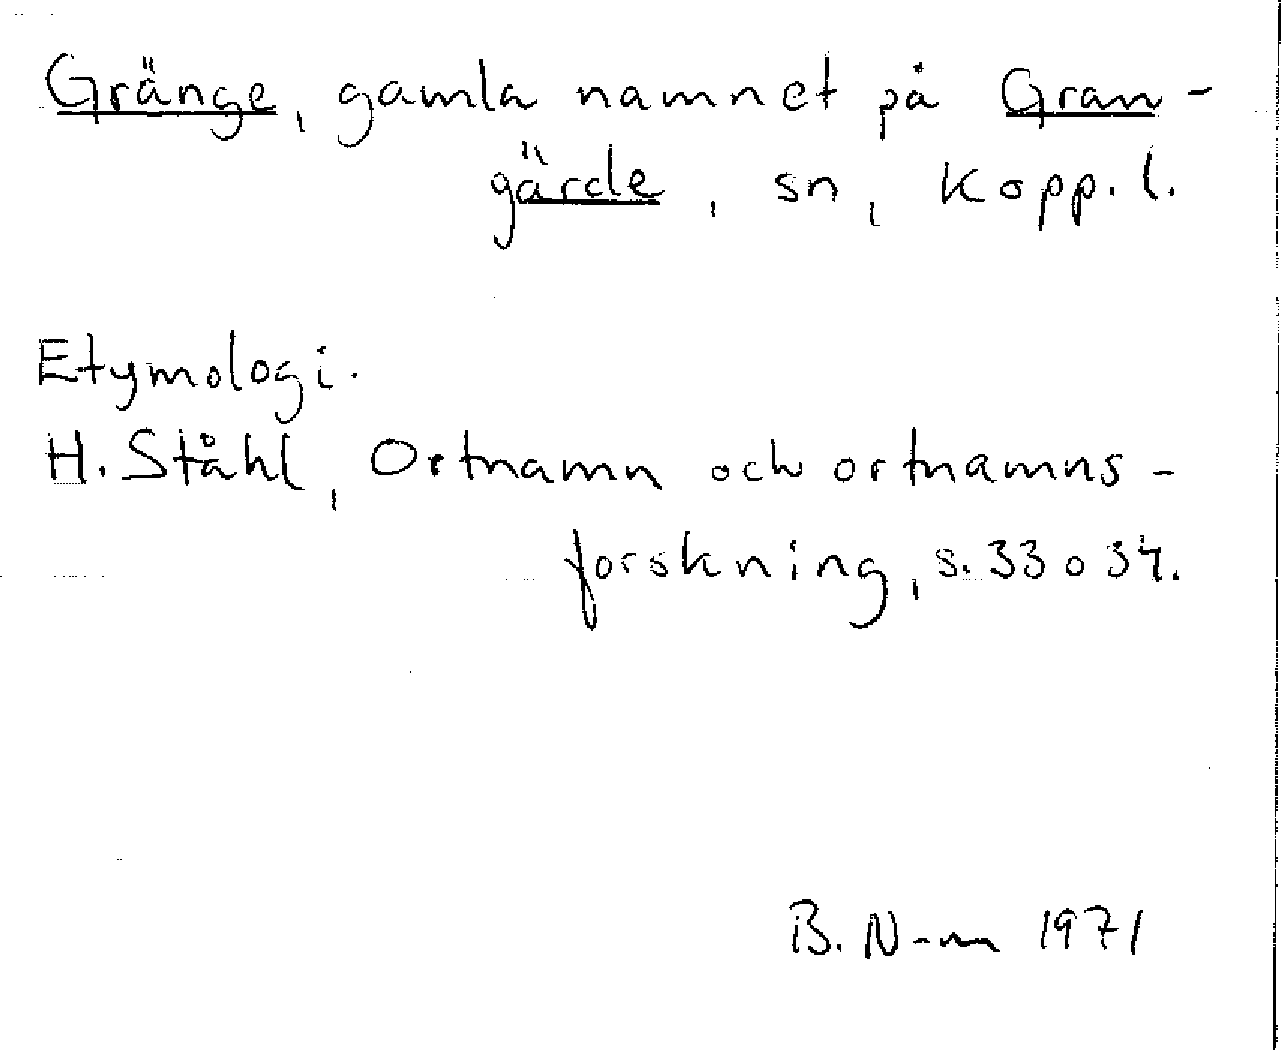 Gränge, gamla namnet på Gran-
gärde, sn, Kopp. l.
Etymologi.
H. Ståhl, Ortnamn och ortnamns-
forskning, s. 33 o 34.
B. N-m 1971